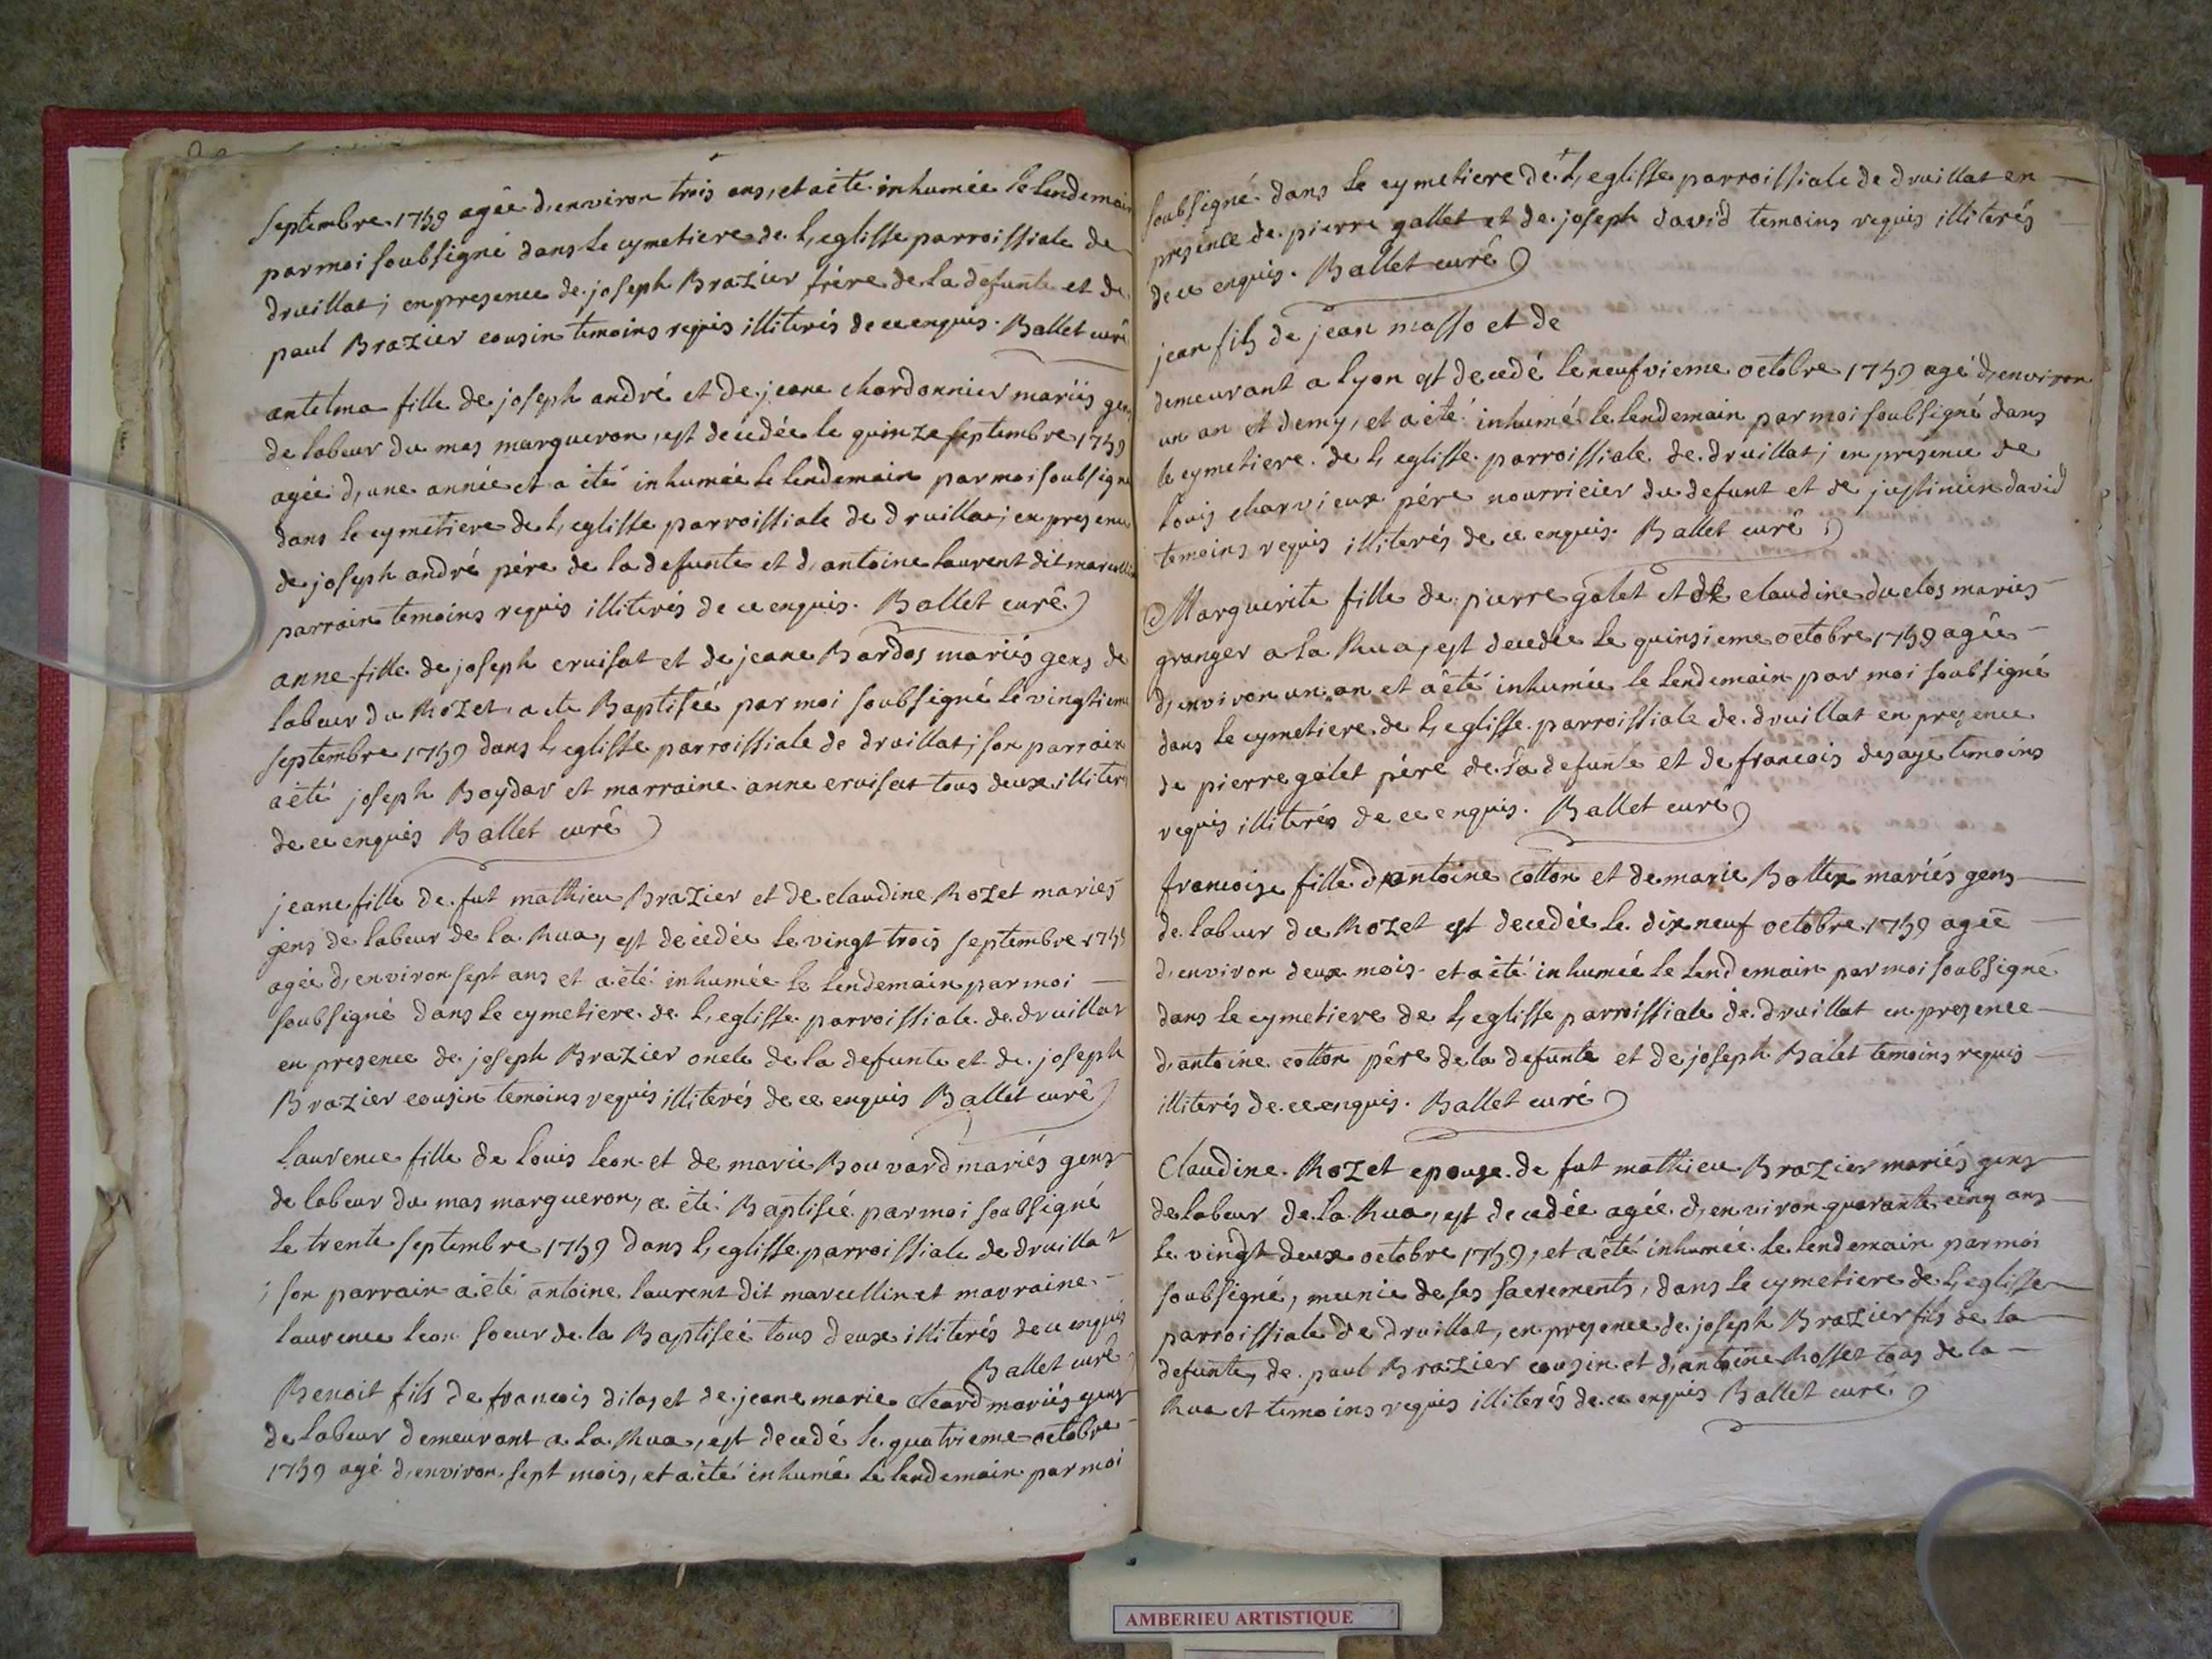 septembre 1759 agée d,environ trois ans, et a eté inhumée le lendemain
par moi soubsigné dans le cymetiere de l,eglisse parroissiale de
druillat; en presence de joseph Brazier frére de la defunte et de
paul Brazier cousin temoins requis illiterés de ce enquis. Ballet curé
antelma fille de joseph andré et de jeane chardonnier mariés gens
de labeur du mas margueron, est decedée le quinze septembre 1759
agée d,une année et a eté inhumée le lendemain par moi soubsigné
dans le cymetiere de l,eglisse parroissiale de druillat; en presence
de joseph andré pére de la defunte et d,antoine laurent dit marcellin
parrain temoins requis illiterés de ce enquis. Ballet curé
anne fille de joseph cruisat et de jeane Bardos mariés gens de
labeur du Rozet a ete Baptisée par moi soubsigné le vingtieme
septembre 1759 dans l,eglisse parroissiale de druillat; son parrain
a eté joseph Boydar et marraine anne cruisat tous deux illiterés
de ce enquis Ballet curé
jeane fille de fut mathieu Brazier et de claudine Rozet mariés
gens de labeur de la Rua, est decedée le vingt trois septembre 1759
agée d,environ sept ans et a eté inhumée le lendemain par moi
soubsigné dans le cymetiere de l,eglisse parroissiale de druillat
en presence de joseph Brazier oncle de la defunte et de joseph
Brazier cousin temoins requis illiterés de ce enquis Ballet curé
laurence fille de louis leon et de marie Bouvard mariés gens
de labeur du mas margueron, a eté Baptisée par moi soubsigné
le trente septembre 1759 dans l,eglisse parroissiale de druillat
; son parrain a eté antoine laurent dit marcellin et marraine
laurence leon soeur de la Baptisée tous deux illiterés de ce enquis
Ballet curé
Benoit fils de francois dilas et de jeane marie cleard mariés gens
de labeur demeurant a la Rua, est decedé le quatrieme octobre
1759 agé d,environ sept mois, et a eté inhumé le lendemain par moi
soubsigné dans le cymetiere de l,eglisse parroissiale de druillat en
presence de pierre gallet et de joseph david temoins requis illiterés
de ce enquis. Ballet curé
jean fils de jean masso et de
demeurant a lyon est decedé le neufvieme octobre 1759 agé d,environ
un an et demy, et a eté inhumé le lendemain par moi soubsigné dans
le cymetiere de l,eglisse parroissiale de druillat; en présence de
louis charvieux pére nourricier du defunt et de justinien david
temoins requis illiterés de ce enquis. Ballet curé
Marguerite fille de pierre galet et de claudine duclos mariés
granger a la Rua, est decedée le quinsieme octobre 1759 agée
d,environ un an et a eté inhumée le lendemain par moi soubsigné
dans le cymetiere de l,eglisse parroissiale de druillat en presence
de pierre galet pére de la defunte et de francois desaye temoins
requis illiterés de ce enquis. Ballet curé
francoise fille d,antoine cotton et de marie Ballex mariés gens
de labeur du Rozet est decedée le dix neuf octobre 1759 agée
d,environ deux mois et a eté inhumée le lendemain par moi soubsigné
dans le cymetiere de l,eglisse parroissiale de druillat en presence
d,antoine cotton pére de la defunte et de joseph Balet temoins requis
illiterés de ce enquis. Ballet curé
Claudine Rozet epouse de fut mathieu Brazier mariés gens
de labeur de la Rua, est decedée agée d,environ quarante cinq ans
le vingt deux octobre 1759, et a eté inhumée le lendemain par moi
soubsigné, munie de ses sacrements, dans le cymetiere de l,eglisse
parroissiale de druillat, en presence de joseph Brazier fils de la
defunte, de paul Brazier cousin et d,antoine Rosset tous de la
Rua et temoins requis illiterés de ce enquis Ballet curé
AMBERIEU ARTISTIQUE